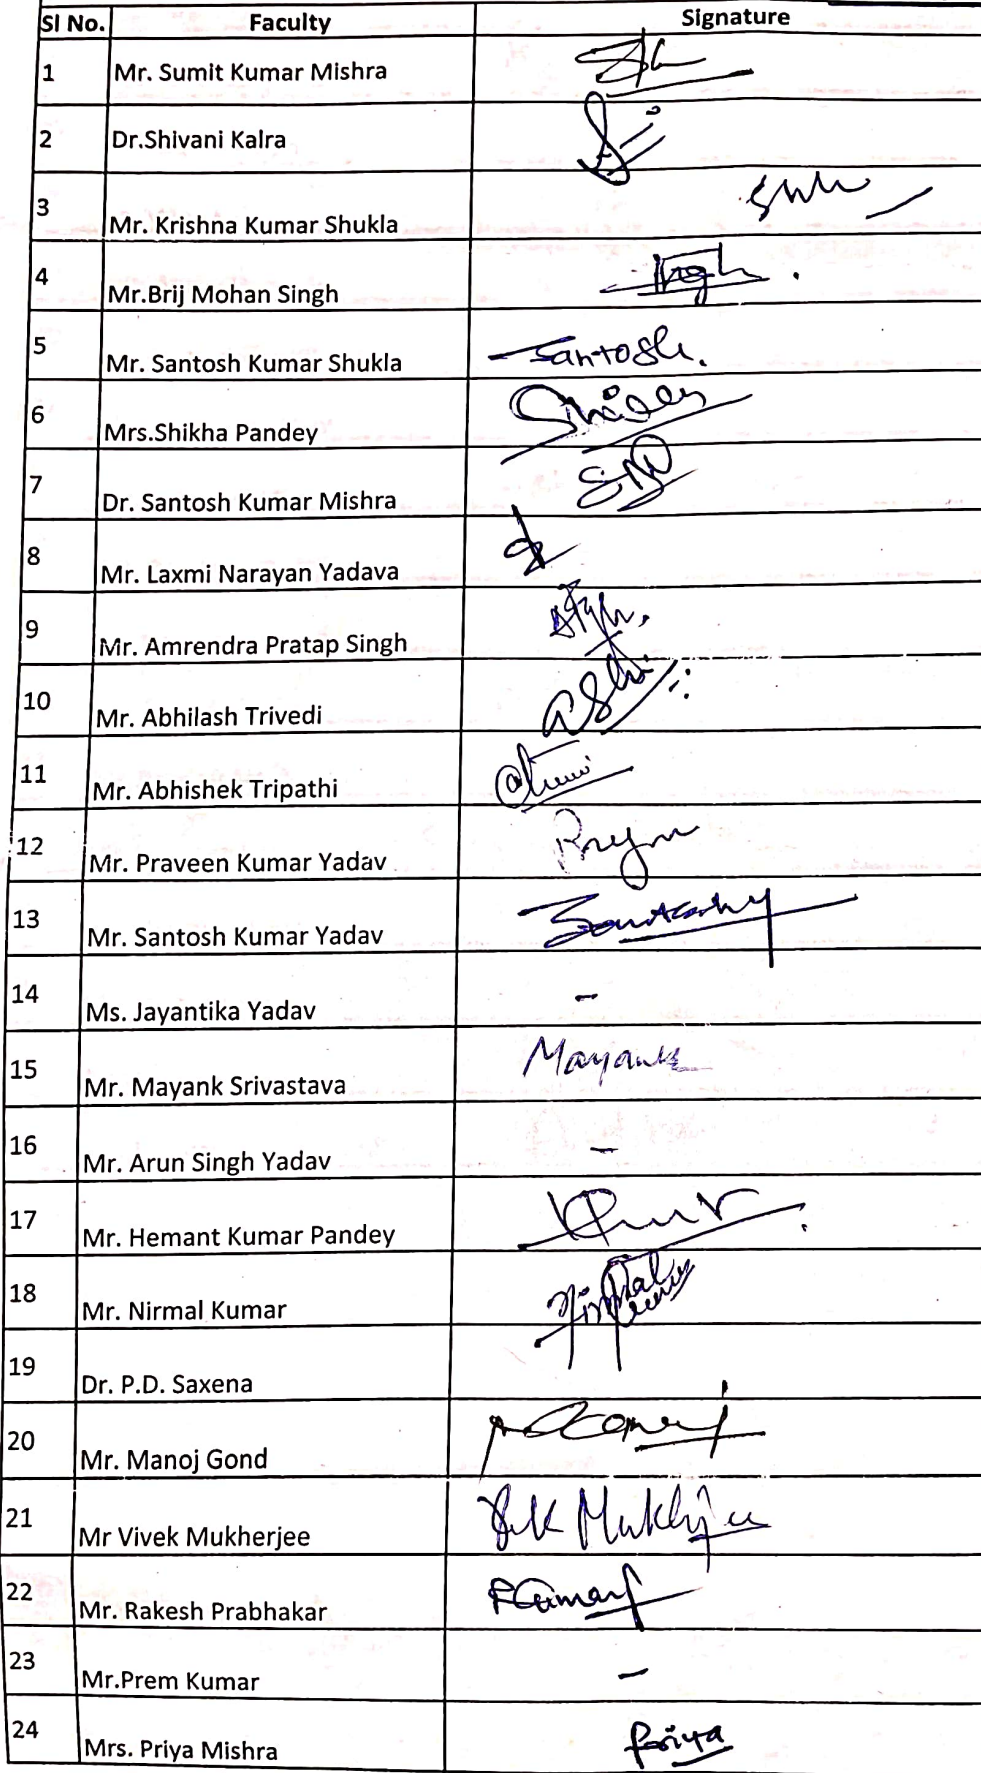 Sl No. Faculty Signature
1 Mr. Sumit Kumar Mishra
2 Dr.Shivani Kalra
3 Mr. Krishna Kumar Shukla
4 Mr.Brij Mohan Singh
5 Mr. Santosh Kumar Shukla Santosh.
6 Mrs.Shikha Pandey
7 Dr. Santosh Kumar Mishra
8 Mr. Laxmi Narayan Yadava
9 Mr. Amrendra Pratap Singh
10 Mr. Abhilash Trivedi
11 Mr. Abhishek Tripathi
12 Mr. Praveen Kumar Yadav
13 Mr. Santosh Kumar Yadav
14 Ms. Jayantika Yadav -
15 Mr. Mayank Srivastava Mayank
16 Mr. Arun Singh Yadav -
17 Mr. Hemant Kumar Pandey
18 Mr. Nirmal Kumar
19 Dr. P.D. Saxena
20 Mr. Manoj Gond
21 Mr Vivek Mukherjee
22 Mr. Rakesh Prabhakar
23 Mr.Prem Kumar -
24 Mrs. Priya Mishra Priya